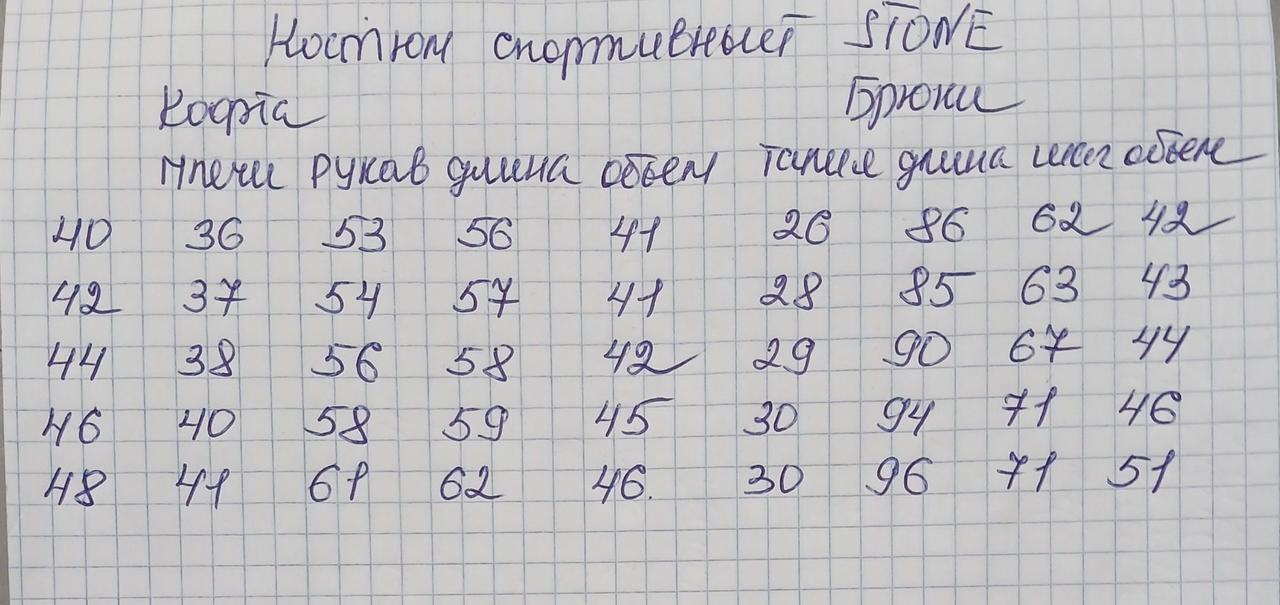 Костюм спортивный STONE
Кофта Брюки
плечи рукав длина объем талия длина шаг объем
40 36 53 56 41 26 86 62 42
42 37 54 57 41 28 85 63 43
44 38 56 58 42 29 90 67 44
46 40 58 59 45 30 94 71 46
48 41 61 62 46. 30 96 71 51